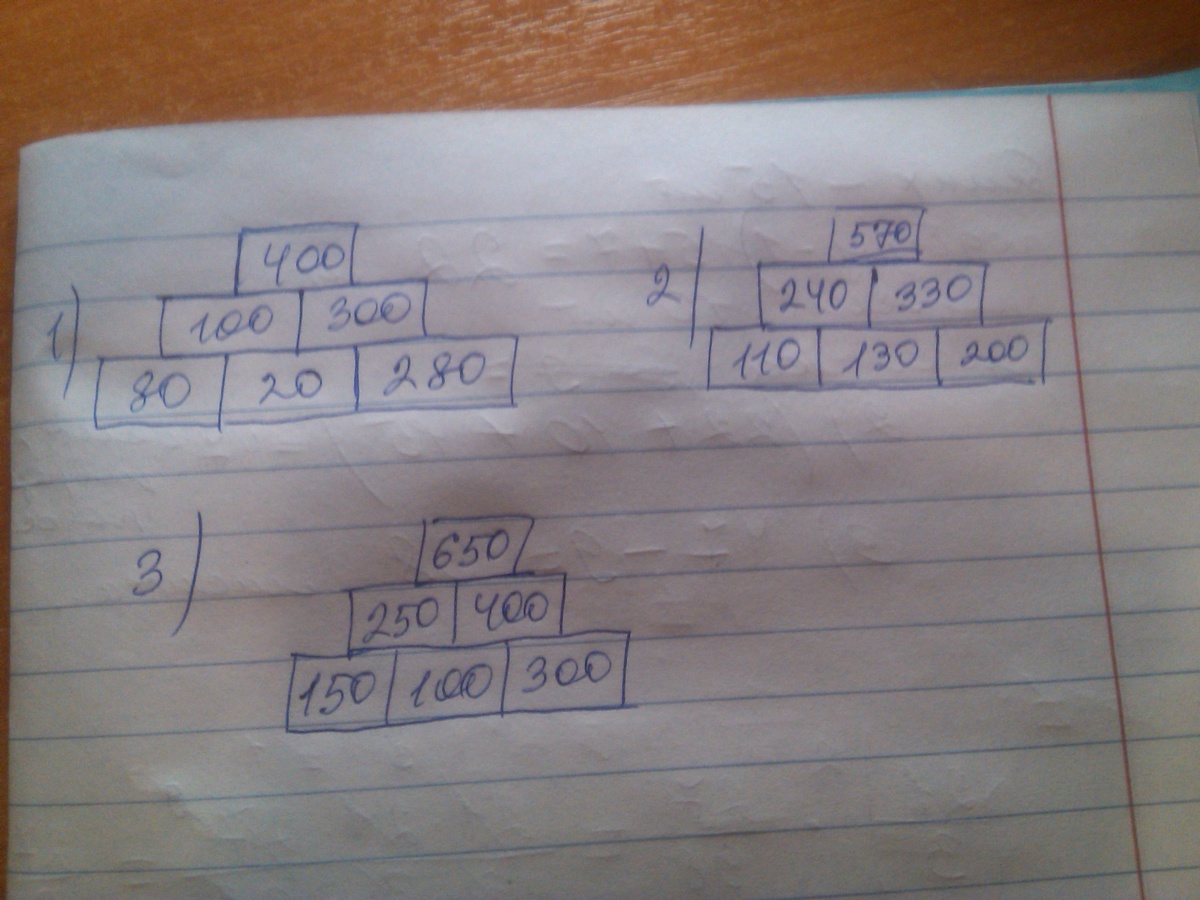 400
1) 100 300
80 20 280
570
2) 240 330
110 130 200
650
3) 250 400
150 100 300